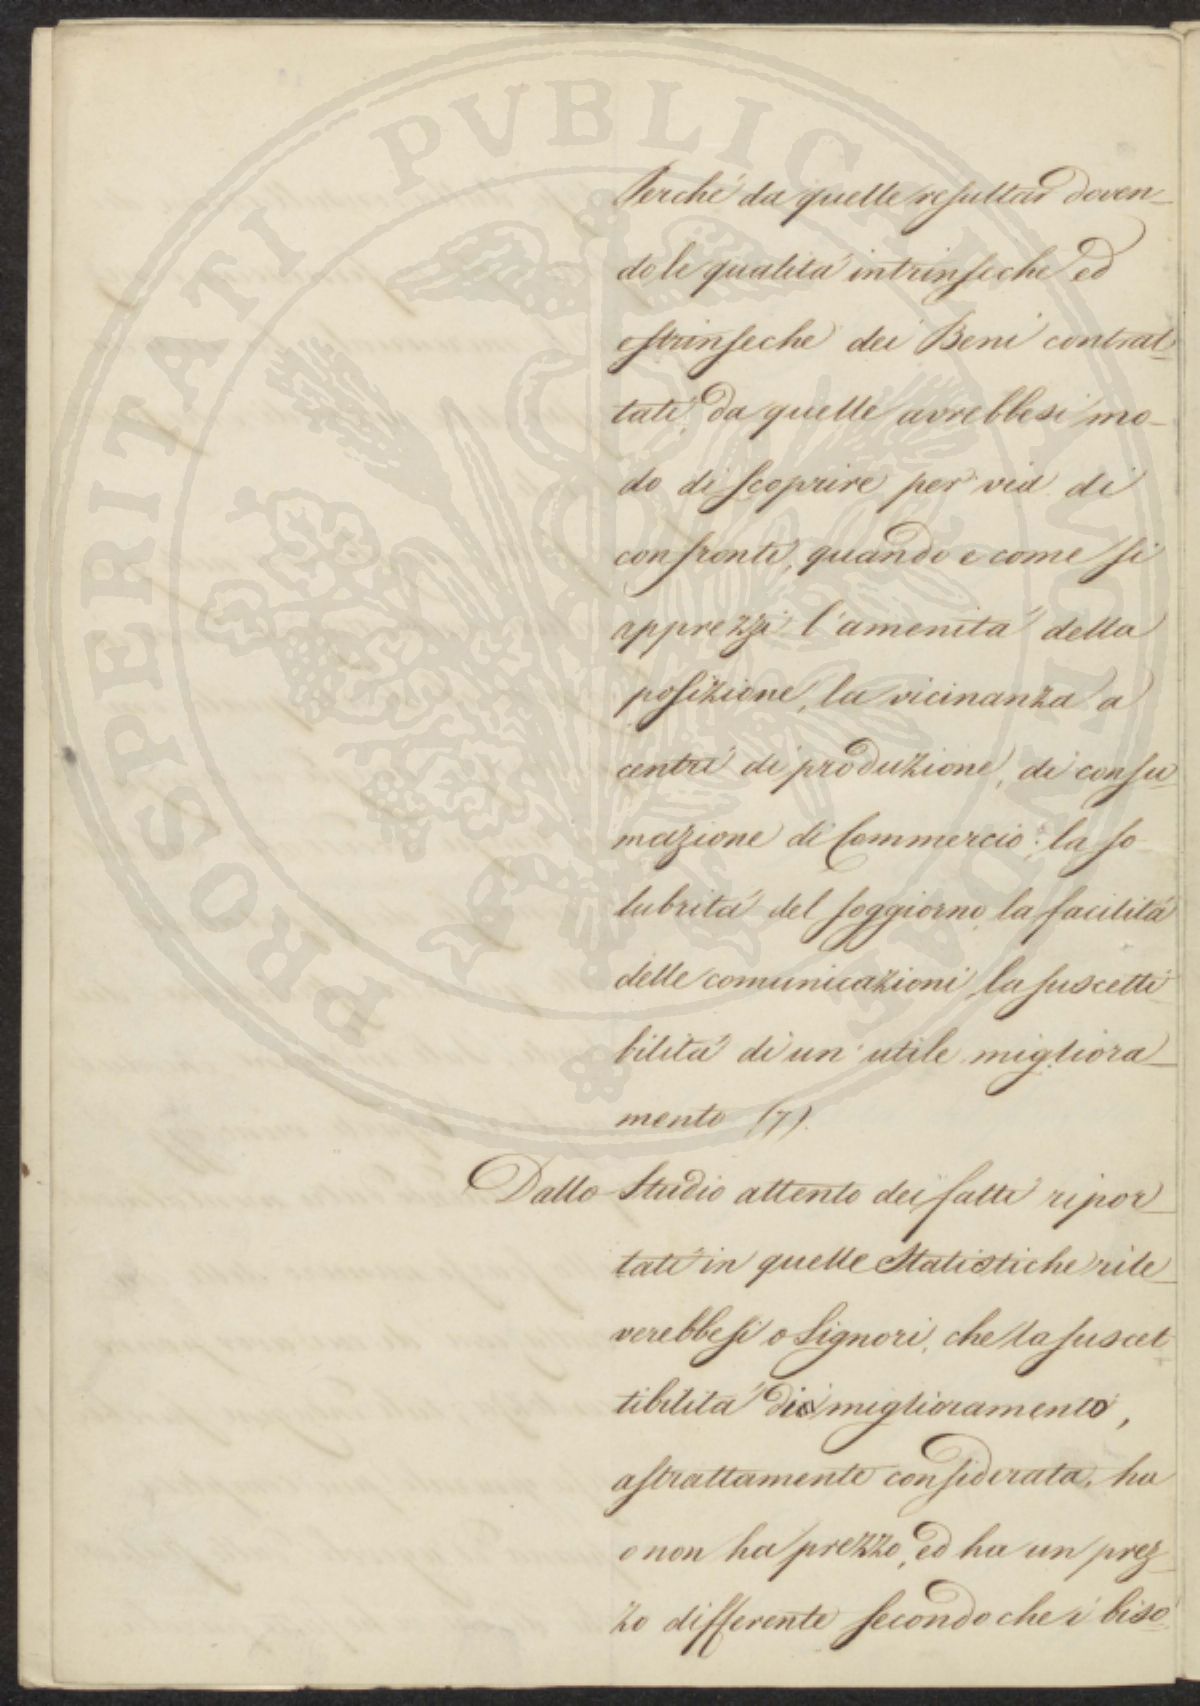 PROSPERITATI PVBLICAE AVGENDAE
Perché da quelle resultar doven-
do le qualità intrinseche ed
estrinseche dei Beni contrat-
tati, da quelle avrebbesi mo-
do di scoprire per via di
confronti, quando e come si
apprezzi l'amenità della
posizione, la vicinanza a
centri di produzione, di consu-
mazione di Commercio: la sa-
lubrità del soggiorno, la facilità
delle comunicazioni, la suscetti-
bilità di un' utile migliora-
mento (7).
Dallo Studio attento dei fatti ripor-
tati in quelle Statistiche rile-
verebbesi o Signori, che la suscet-
tibilità di miglioramento,
astrattamente considerata, ha
o non ha prezzo, ed ha un prez-
zo differente secondo che i biso-